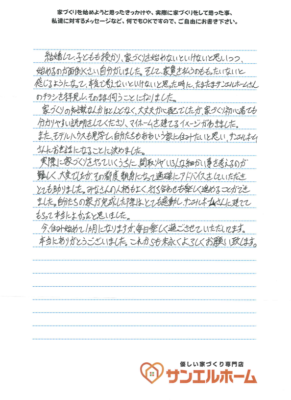 家づくりを始めようと思ったきっかけや、実際に家づくりをして思った事、
私達に対するメッセージなど、何でもOKですので、ご自由にお書き下さい。
結婚して子どもを授かり、家づくりを始めないといけないと思いつつ、
始めるのが面倒くさい自分がいました。そして家賃を払うのももったいないと
感じるようになって、本気で考えないといけないと思った時に、たまたまサンエルホームさん
のチラシを拝見し、そのまま伺うことになりました。
家づくりの知識なんかほとんどなく、大丈夫かな心配でしたが、家づくり初心者でも
分かりやすい説明をしてくださり、マイホームを建てるイメージがわきました。
また、モデルハウスも見学し、自分たちもおもいう家に住みたいと思い、サンエルホーム
さんにお世話になることに決めました。
実際に家づくりさせていくうちに、間取りやいろんな細かい事を考えるのが
難しく、大変でしたが、その都度親身になって適確にアドバイスをしていただき
とても助かりました。みなさんの人柄もよく、打ち合わせも楽しく進めることができ
ました。自分たちの家が完成した際はとても感動し、サンエルホームさんに建てて
もらって本当によかったと思いました。
今、住み始めて1ヵ月になりますが、毎日楽しく過ごさせていただいてます。
本当にありがとうございました。これからも末永くよろしくお願い致します。
優しい家づくり専門店
サンエルホーム